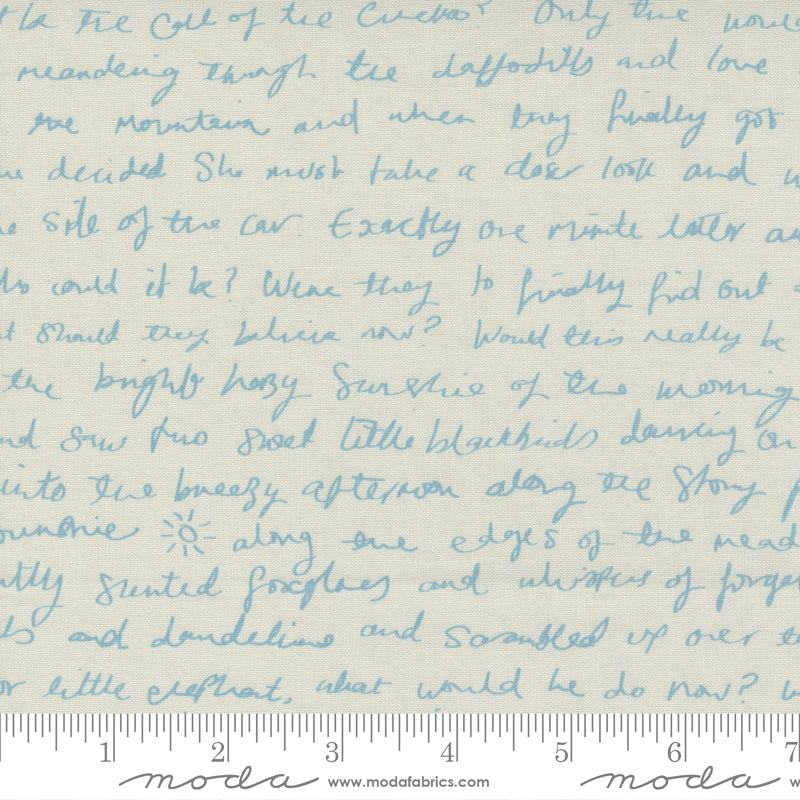 the Call of the Cuckoo? Only time would
meandering through the daffodils and love
the mountain and when they finally got
decided She must take a closer look and
the side of the car. Exactly one minute later
could it be? Were they to finally find out
should they believe now? Would this really be
the bright hazy Sunshine of the morning
and saw two sweet little blackbirds dancing on
into the breezy afternoon along the Stony
along the edges of the
scented foxgloves and whispers of
and dandelions and scrambled up over
little elephant, what would he do now?
1 2 3 4 5 6 7
moda www.modafabrics.com moda